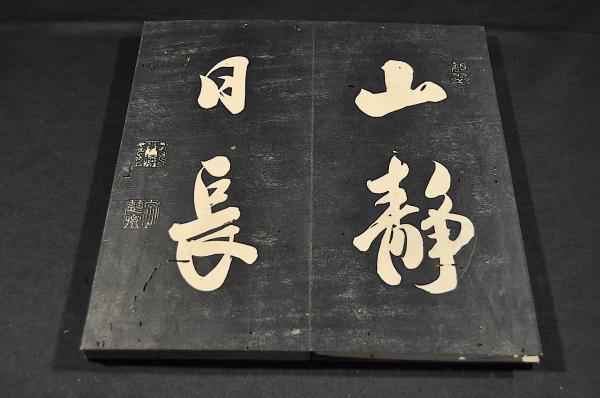 山静
日長